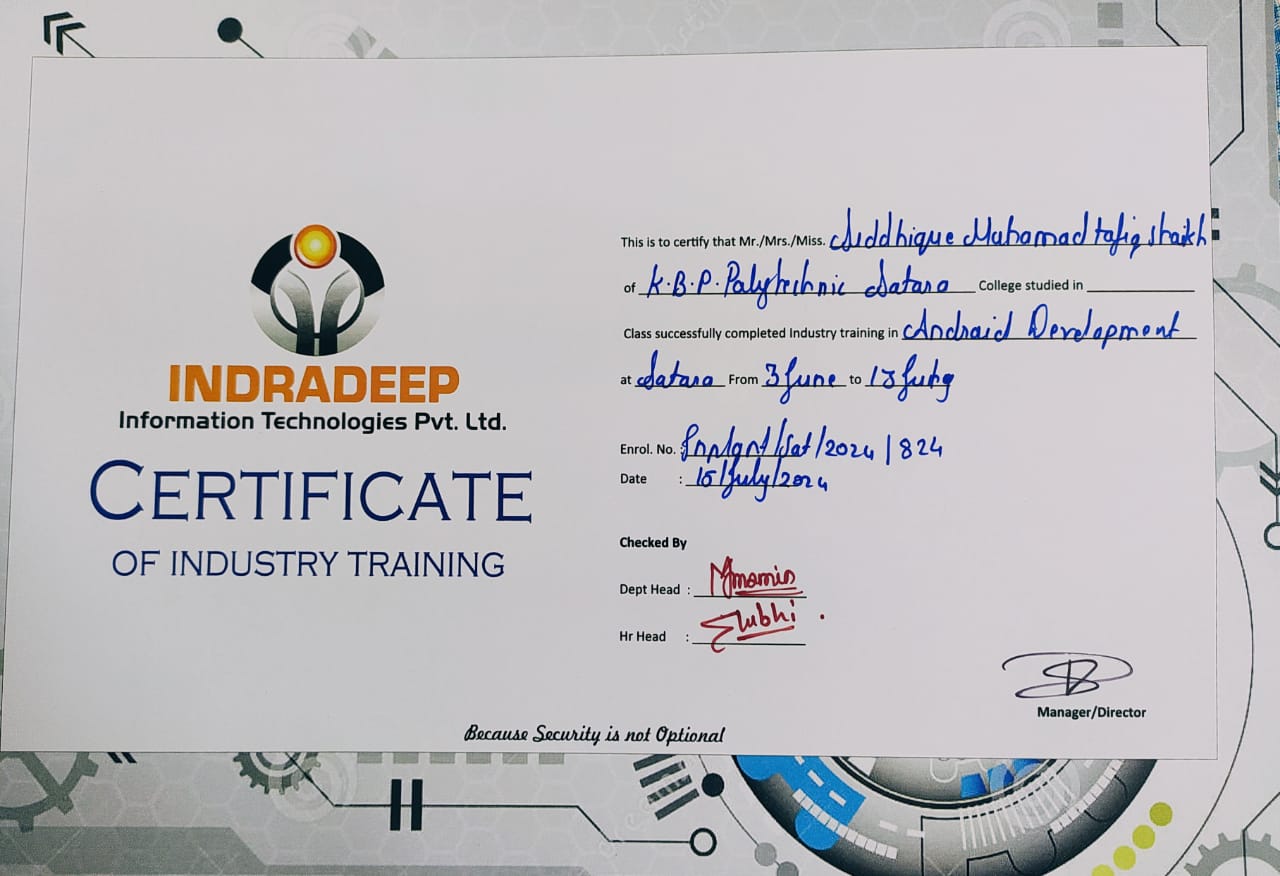 INDRADEEP
Information Technologies Pvt. Ltd.
CERTIFICATE
OF INDUSTRY TRAINING
This is to certify that Mr./Mrs./Miss. Siddhique Muhamad tafiq shaikh
of K.B.P. Polytechnic Satara College studied in
Class successfully completed Industry training in Android Development
at Satara From 3 June to 15 July
Enrol. No. : Inplant/Sat/2024/824
Date : 15/July/2024
Checked By
Dept Head :
Hr Head :
Manager/Director
Because Security is not Optional